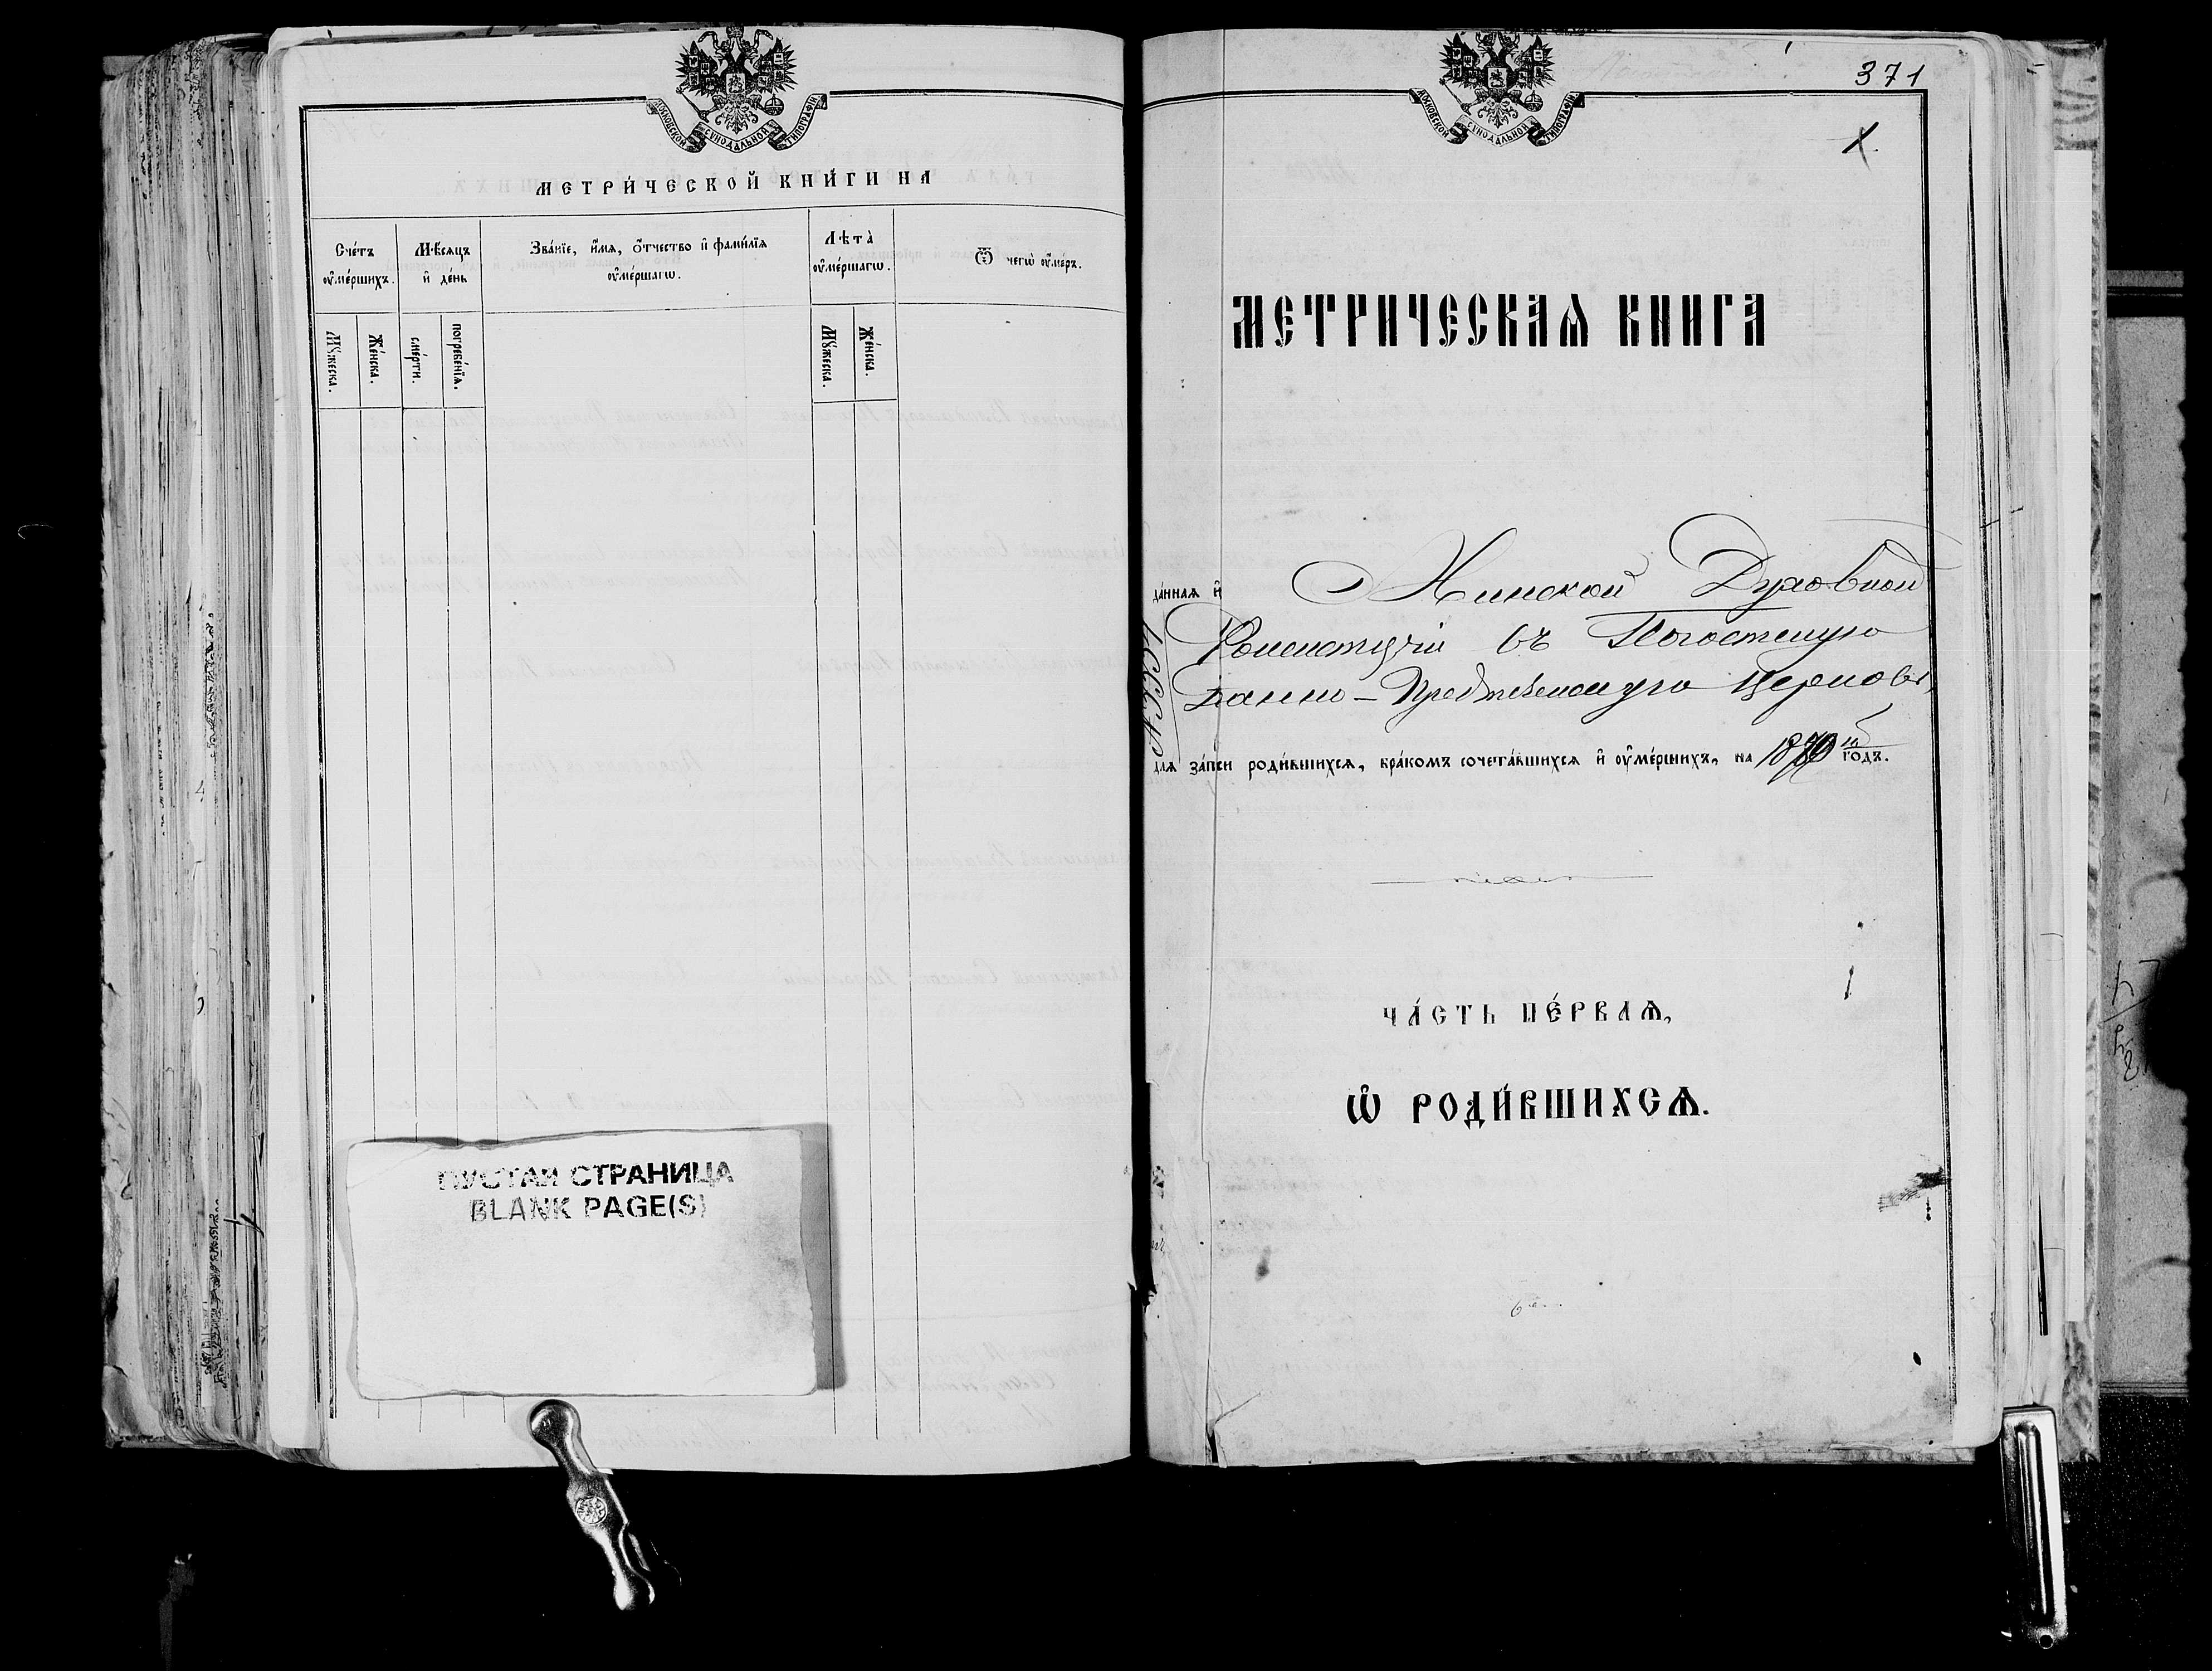 МОСКОВСКОЙ СѴНОДАЛЬНОЙ ТИПОГРАФІИ
МЕТРИ́ЧЕСКОЙ КНИ́ГИ НА
Сче́тъ ᲂу҆ме́ршихъ.
Мѣ́сяцъ и҆ де́нь
Зва́нїе, и҆́мя, ѻ҆́тчество и҆ фами́лїя ᲂу҆ме́ршагѡ.
Лѣта̀ ᲂу҆ме́ршагѡ.
Ѿ чегѡ̀ ᲂу҆́меръ.
Мꙋ́жеска.
Же́нска.
сме́рти.
погребе́нїѧ.
Мꙋ́жеска.
Же́нска.
ПУСТАЯ СТРАНИЦА
BLANK PAGE(S)
МОСКОВСКОЙ СѴНОДАЛЬНОЙ ТИПОГРАФІИ
371
1
МЕТРИЧЕСКАѦ КНИГА
да́ннаѧ и҆ Минской Духовной
Консисторіи въ Погостскую
Іоанно-Предтеченскую церковь,
для за́писи роди́вшихсѧ, бра́комъ сочета́вшихсѧ и҆ ᲂу҆ме́ршихъ, на 1870 й го́дъ.
ЧА́СТЬ ПЕ́РВАѦ,
Ѡ҆ РОДИ́ВШИХСѦ.